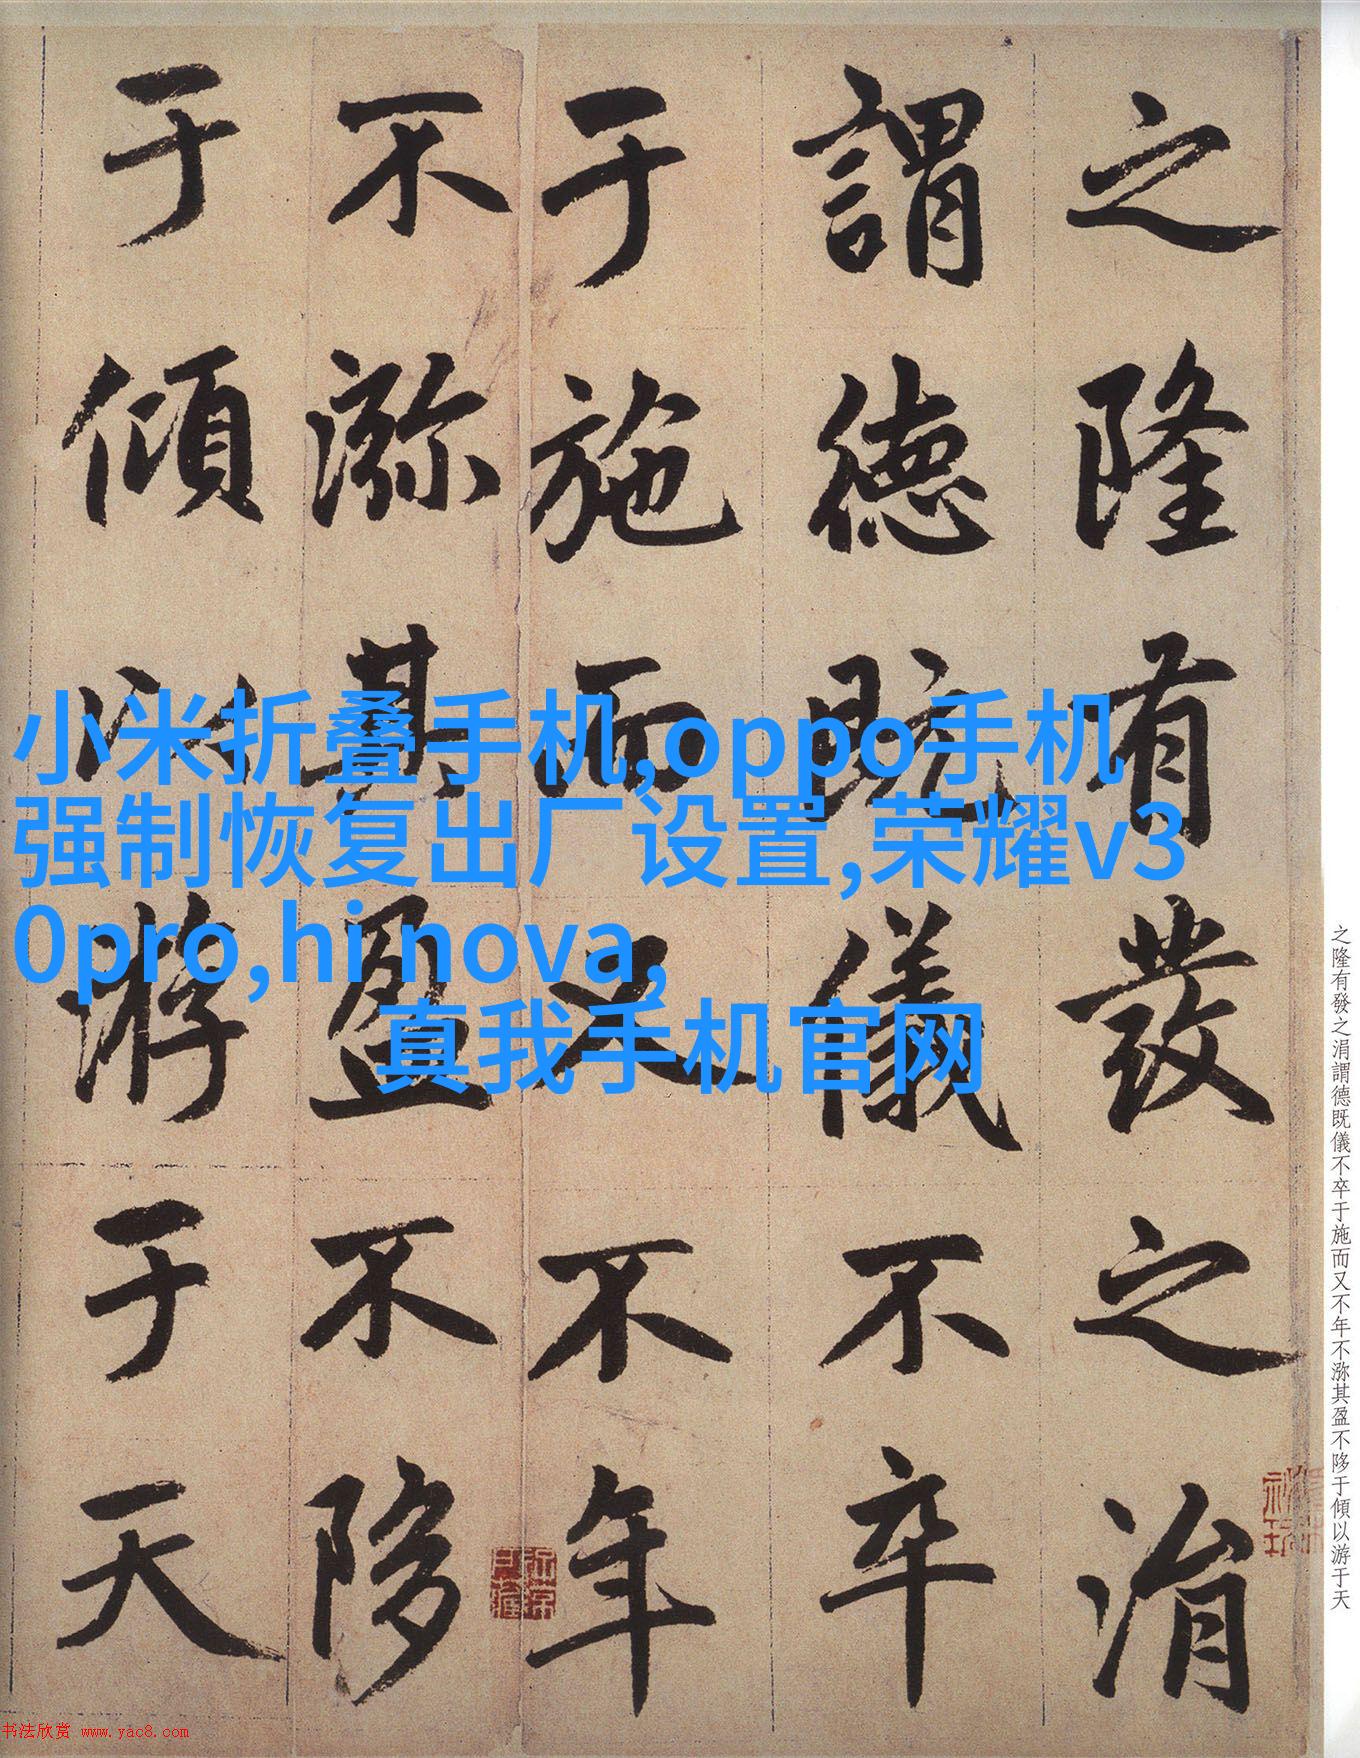 之隆有發之涓
謂德既儀不卒
于施而又不年
不㳽其盈不陊
于傾以游于天
小米折叠手机,oppo手机
强制恢复出厂设置,荣耀v3
0pro,hi nova,
真我手机官网
之隆有發之涓謂德既儀不卒于施而又不年不㳽其盈不陊于傾以游于天
书法欣赏 www.yac8.com